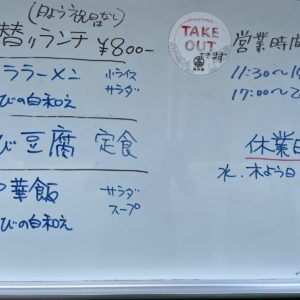 (日よう祝日はなし)
替りランチ ¥800-
ララーメン 小ライス
サラダ
びの白和え
び豆腐 定食
華飯 サラダ
スープ
びの白和え
TAKE
OUT
できます
営業時間
11:30~1
17:00~2
休業日
水.木よう日